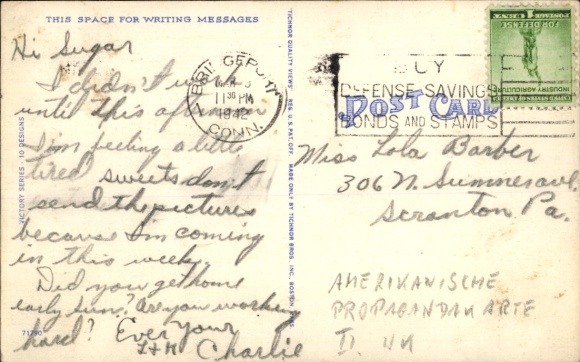 THIS SPACE FOR WRITING MESSAGES
Hi Sugar
I didn't
until this afternoon
I'm feeling a little
tired sweets don't
send the pictures
because I'm coming
in this week.
Did you get home
early Sun? Are you working
hard? Ever Your
Charlie
VICTORY SERIES - 10 DESIGNS
71790
TICHNOR QUALITY VIEWS REG. U. S. PAT. OFF. MADE ONLY BY TICHNOR BROS. INC. BOSTON
BRIDGEPORT
11 30 PM
1942
CONN.
BUY
DEFENSE SAVINGS
BONDS AND STAMPS
POST CARD
UNITED STATES OF AMERICA
INDUSTRY AGRICULTURE
FOR DEFENSE
POSTAGE 1 CENT
Miss Lola Barber
306 N. Sumner ave.
Scranton Pa.
AMERIKANISCHE
PROPAGANDAKARTE
II. WK